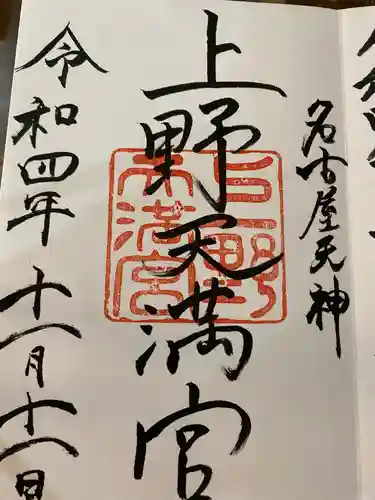 名古屋天神
上野天満宮
上野
天満宮
令和四年十一月十一日